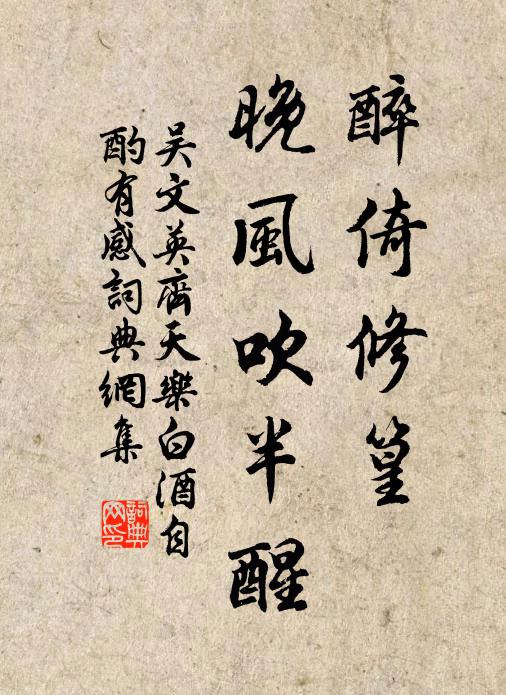 醉倚修篁
晚風吹半醒
吴文英齊天樂白酒自
酌有感詞典網集
詞典
网印